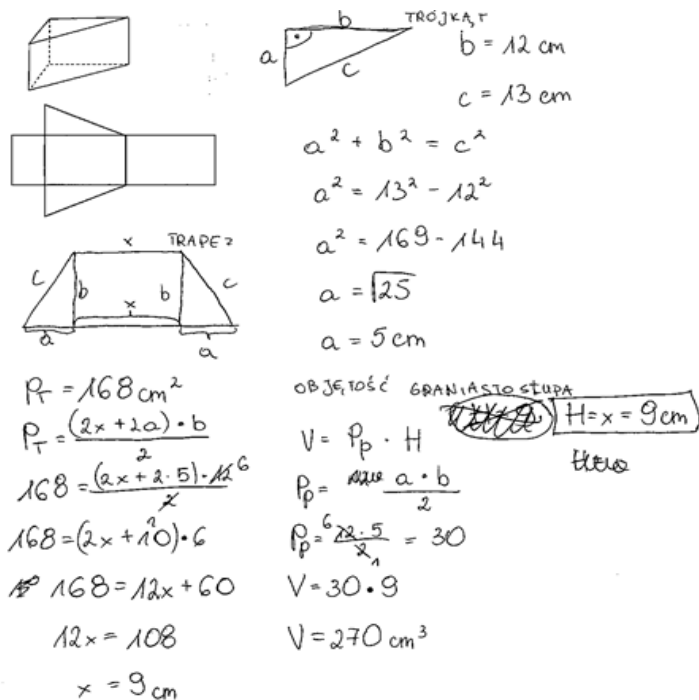 TRÓJKĄT
b
a
c
b = 12 cm
c = 13 cm
a² + b² = c²
a² = 13² - 12²
a² = 169 - 144
a = √25
a = 5 cm
x
TRAPEZ
c
b
x
b
c
a
a
P_T = 168 cm²
P_T = (2x + 2a) · b / 2
168 = (2x + 2 · 5) · 12 6 / 2
168 = (2x + 10) · 6
168 = 12x + 60
12x = 108
x = 9 cm
OBJĘTOŚĆ GRANIASTOSŁUPA
H = x = 9 cm
V = P_p · H
P_p = a · b / 2
P_p = 6 12 · 5 / 2 1 = 30
V = 30 · 9
V = 270 cm³